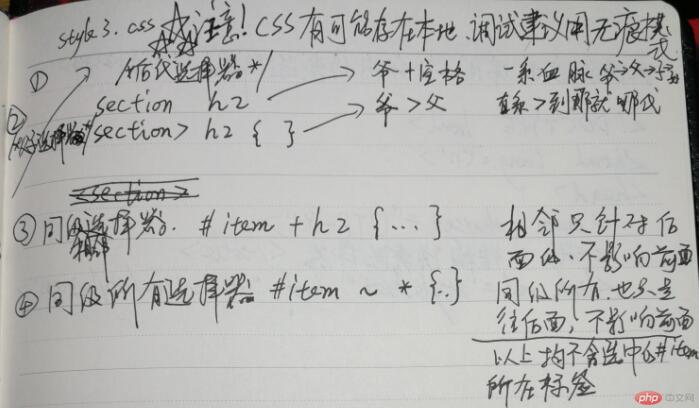 style3.css 注意！CSS有可能存在本地、调试建议用无痕模式
① /*后代选择器*/
section h2 → 爷+空格 一条血脉 爷→父→
② section> h2 { } → 爷>父 直系>到那就哪代
<section>
③ 同级相邻选择器. #item + h2 {...} 相邻只针对后
面的、不影响前面
④ 同级所有选择器 #item ~ * {..} 同级所有、也只是
往后面，不影响前面
以上均不含选中的#item
所在标签
php 中文网